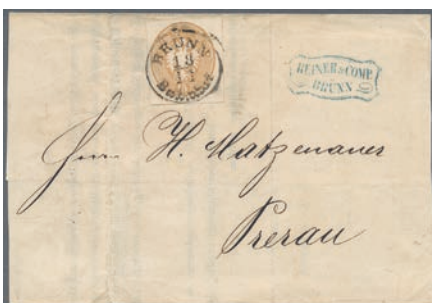 BRÜNN
13
11
REINER & COMP.
BRÜNN
Herrn H. Matzenauer
Prerau